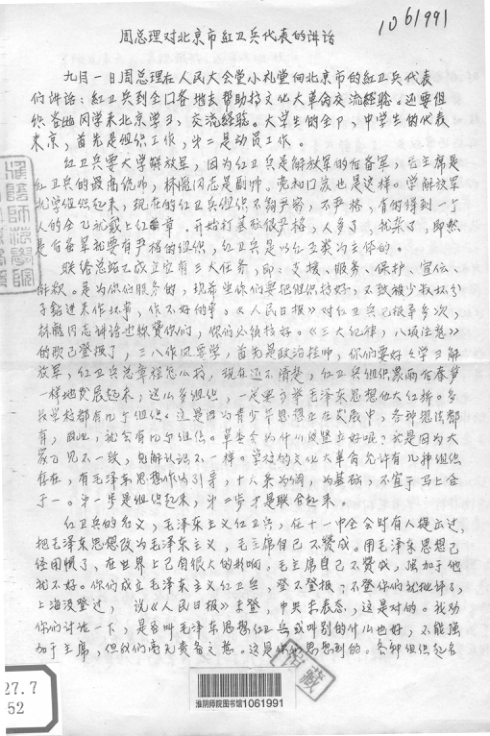 1061991
周总理对北京市红卫兵代表的讲话
九月一日周总理在人民大会堂小礼堂向北京市的红卫兵代表
们讲话：红卫兵到全国各地去帮助搞文化大革命交流经验。还要组
织各地同学来北京学习，交流经验。大学生的全部，中学生的代表
来京，首先是组织工作，第二是动员工作。
红卫兵要大学解放军，因为红卫兵是解放军的后备军，毛主席是
红卫兵的最高统帅，林彪同志是副帅。学解放军
就学组织起来，现在的红卫兵组织不够严密，不严格，有的得到一个
人的同意就戴上红袖章，开始打基础很严格，人多了，就杂了，即然
是后备军就要有严格的组织，红卫兵是以红五类为主体的。
联络总站已成立它有三大任务，即：支援、服务、保护、宣传、
解放。是为你们服务的，现希望你们要把组织搞好，不致被少数坏分
子钻进来作坏事，作不好的事。《人民日报》对红卫兵已报导多次，
林彪同志讲话也称赞你们，你们必须搞好。《三大纪律，八项注意》
的歌已登报了，三八作风要学，首先是政治挂帅，你们要好好学习解
放军，红卫兵总章程怎么搞，现在还不清楚，红卫兵组织象雨后春笋
一样地发展起来，这么多组织，一定要高举毛泽东思想伟大红旗。多
数学校都有几个组织。这是因为青少年思想正在发展中，各种想法都
有，因此，就会有几个组织。革委会为什么没建立好呢？就是因为大
家意见不一致，见解认识不一样。学校的文化大革命允许有几种组织
存在，有毛泽东思想作为引导，十六条为纲，为基础，不宜于马上合
于一。第一步是组织起来，第二步才是联合起来。
红卫兵的名义，毛泽东主义红卫兵，在十一中全会时有人提出过，
把毛泽东思想改为毛泽东主义，毛主席自己不赞成。用毛泽东思想已
经固定了，在世界上已有很大的影响，毛主席自己不赞成，强加于他
就不好。你们成立毛泽东主义红卫兵，登不登报？不登你们就抵触了，
上海没登过，说《人民日报》未登，中央未表态，这是对的。我劝
你们讨论一下，是否叫毛泽东思想红卫兵或叫别的什么也好，不能强
加于主席，但我们毫无责备之意。这是你们想到的。各种组织起名
27.7
52
馆藏
淮阴师院图书馆1061991